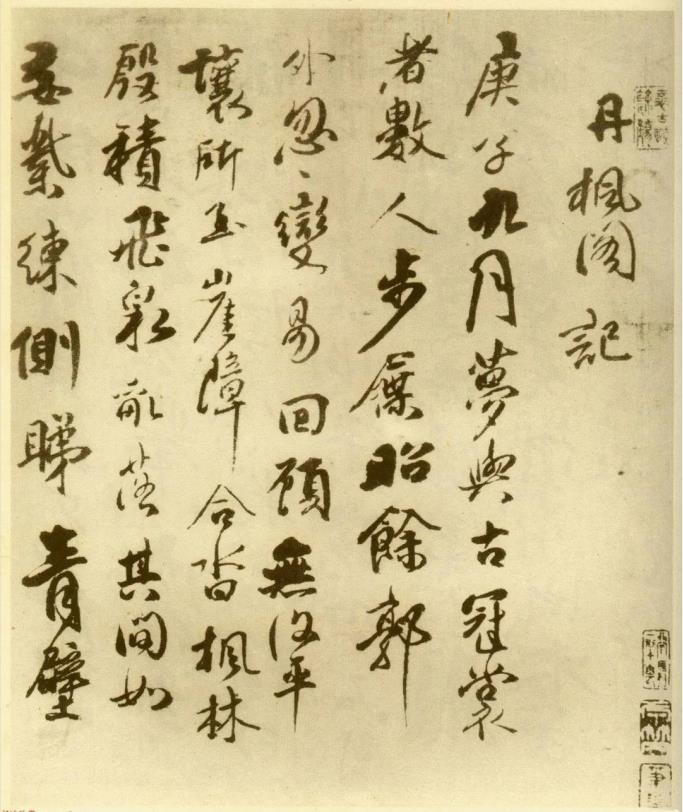 丹楓阁記
庚子九月夢與古冠裳
者數人步屧昭餘郭
外忽〻變易回顧無復平
壤斫玉崖障合沓楓林
殷積飛彩亂落其間如
練側睇青壁